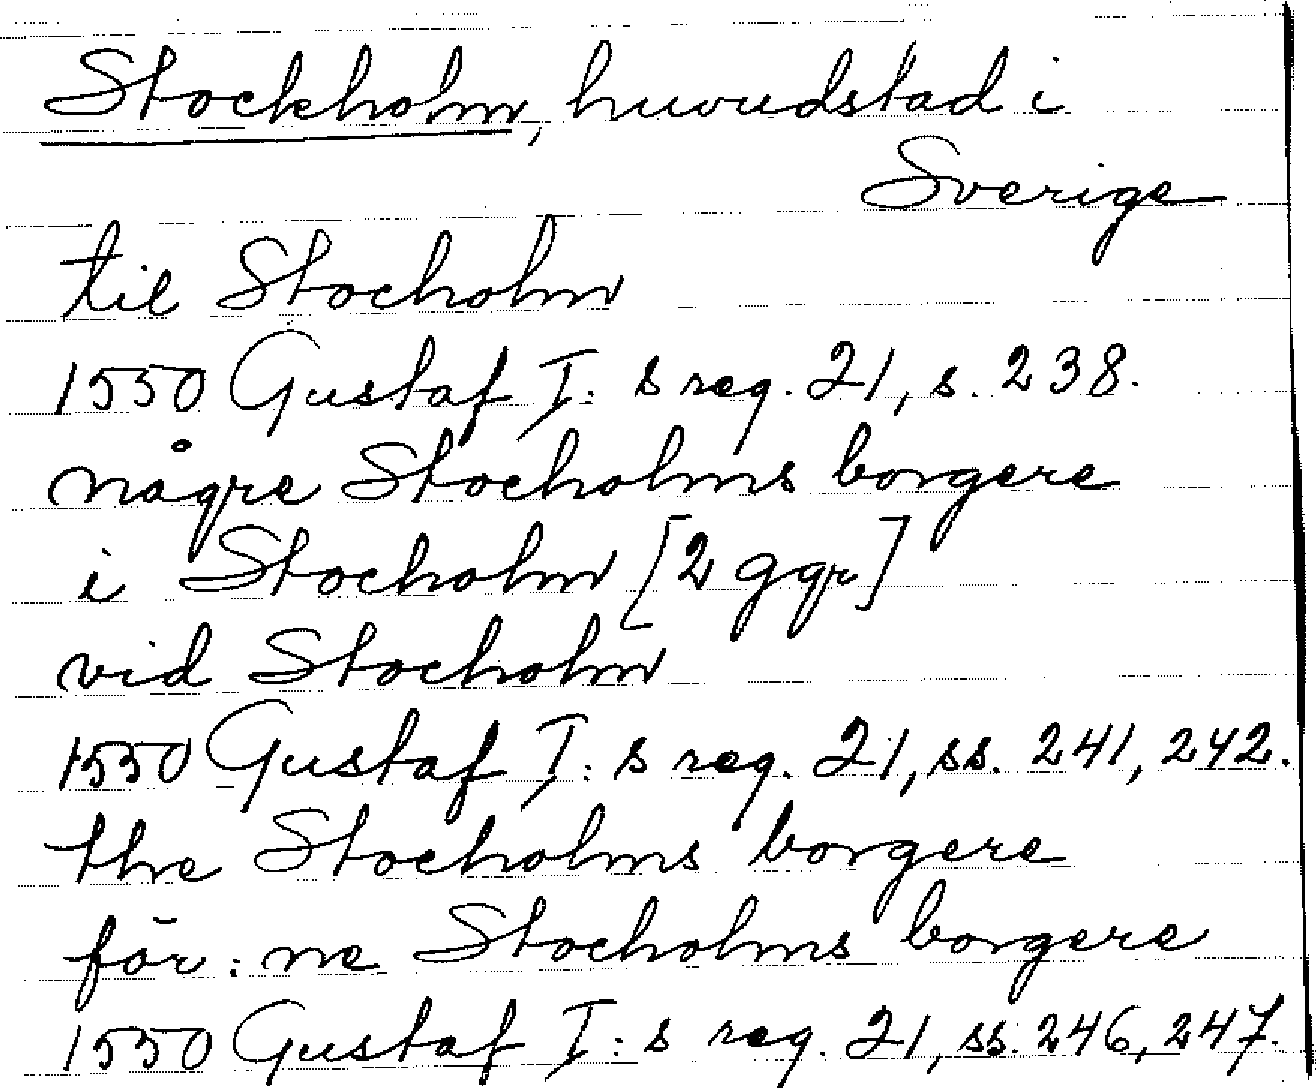 Stockholm, huvudstad i
Sverige
til Stocholm
1550 Gustaf I: s reg. 21, s. 238.
någre Stocholms borgere
i Stocholm [2 ggr]
vid Stocholm
1550 Gustaf I: s reg. 21, ss. 241, 242.
the Stocholms borgere
för: ne Stocholms borgere
1550 Gustaf I: s reg. 21, ss. 246, 247.